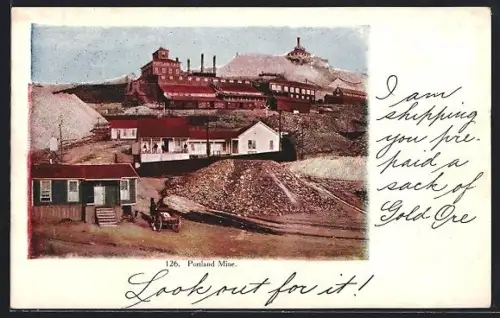 I am
shipping
you pre-
paid a
sack of
Gold Ore
126. Portland Mine.
Look out for it!